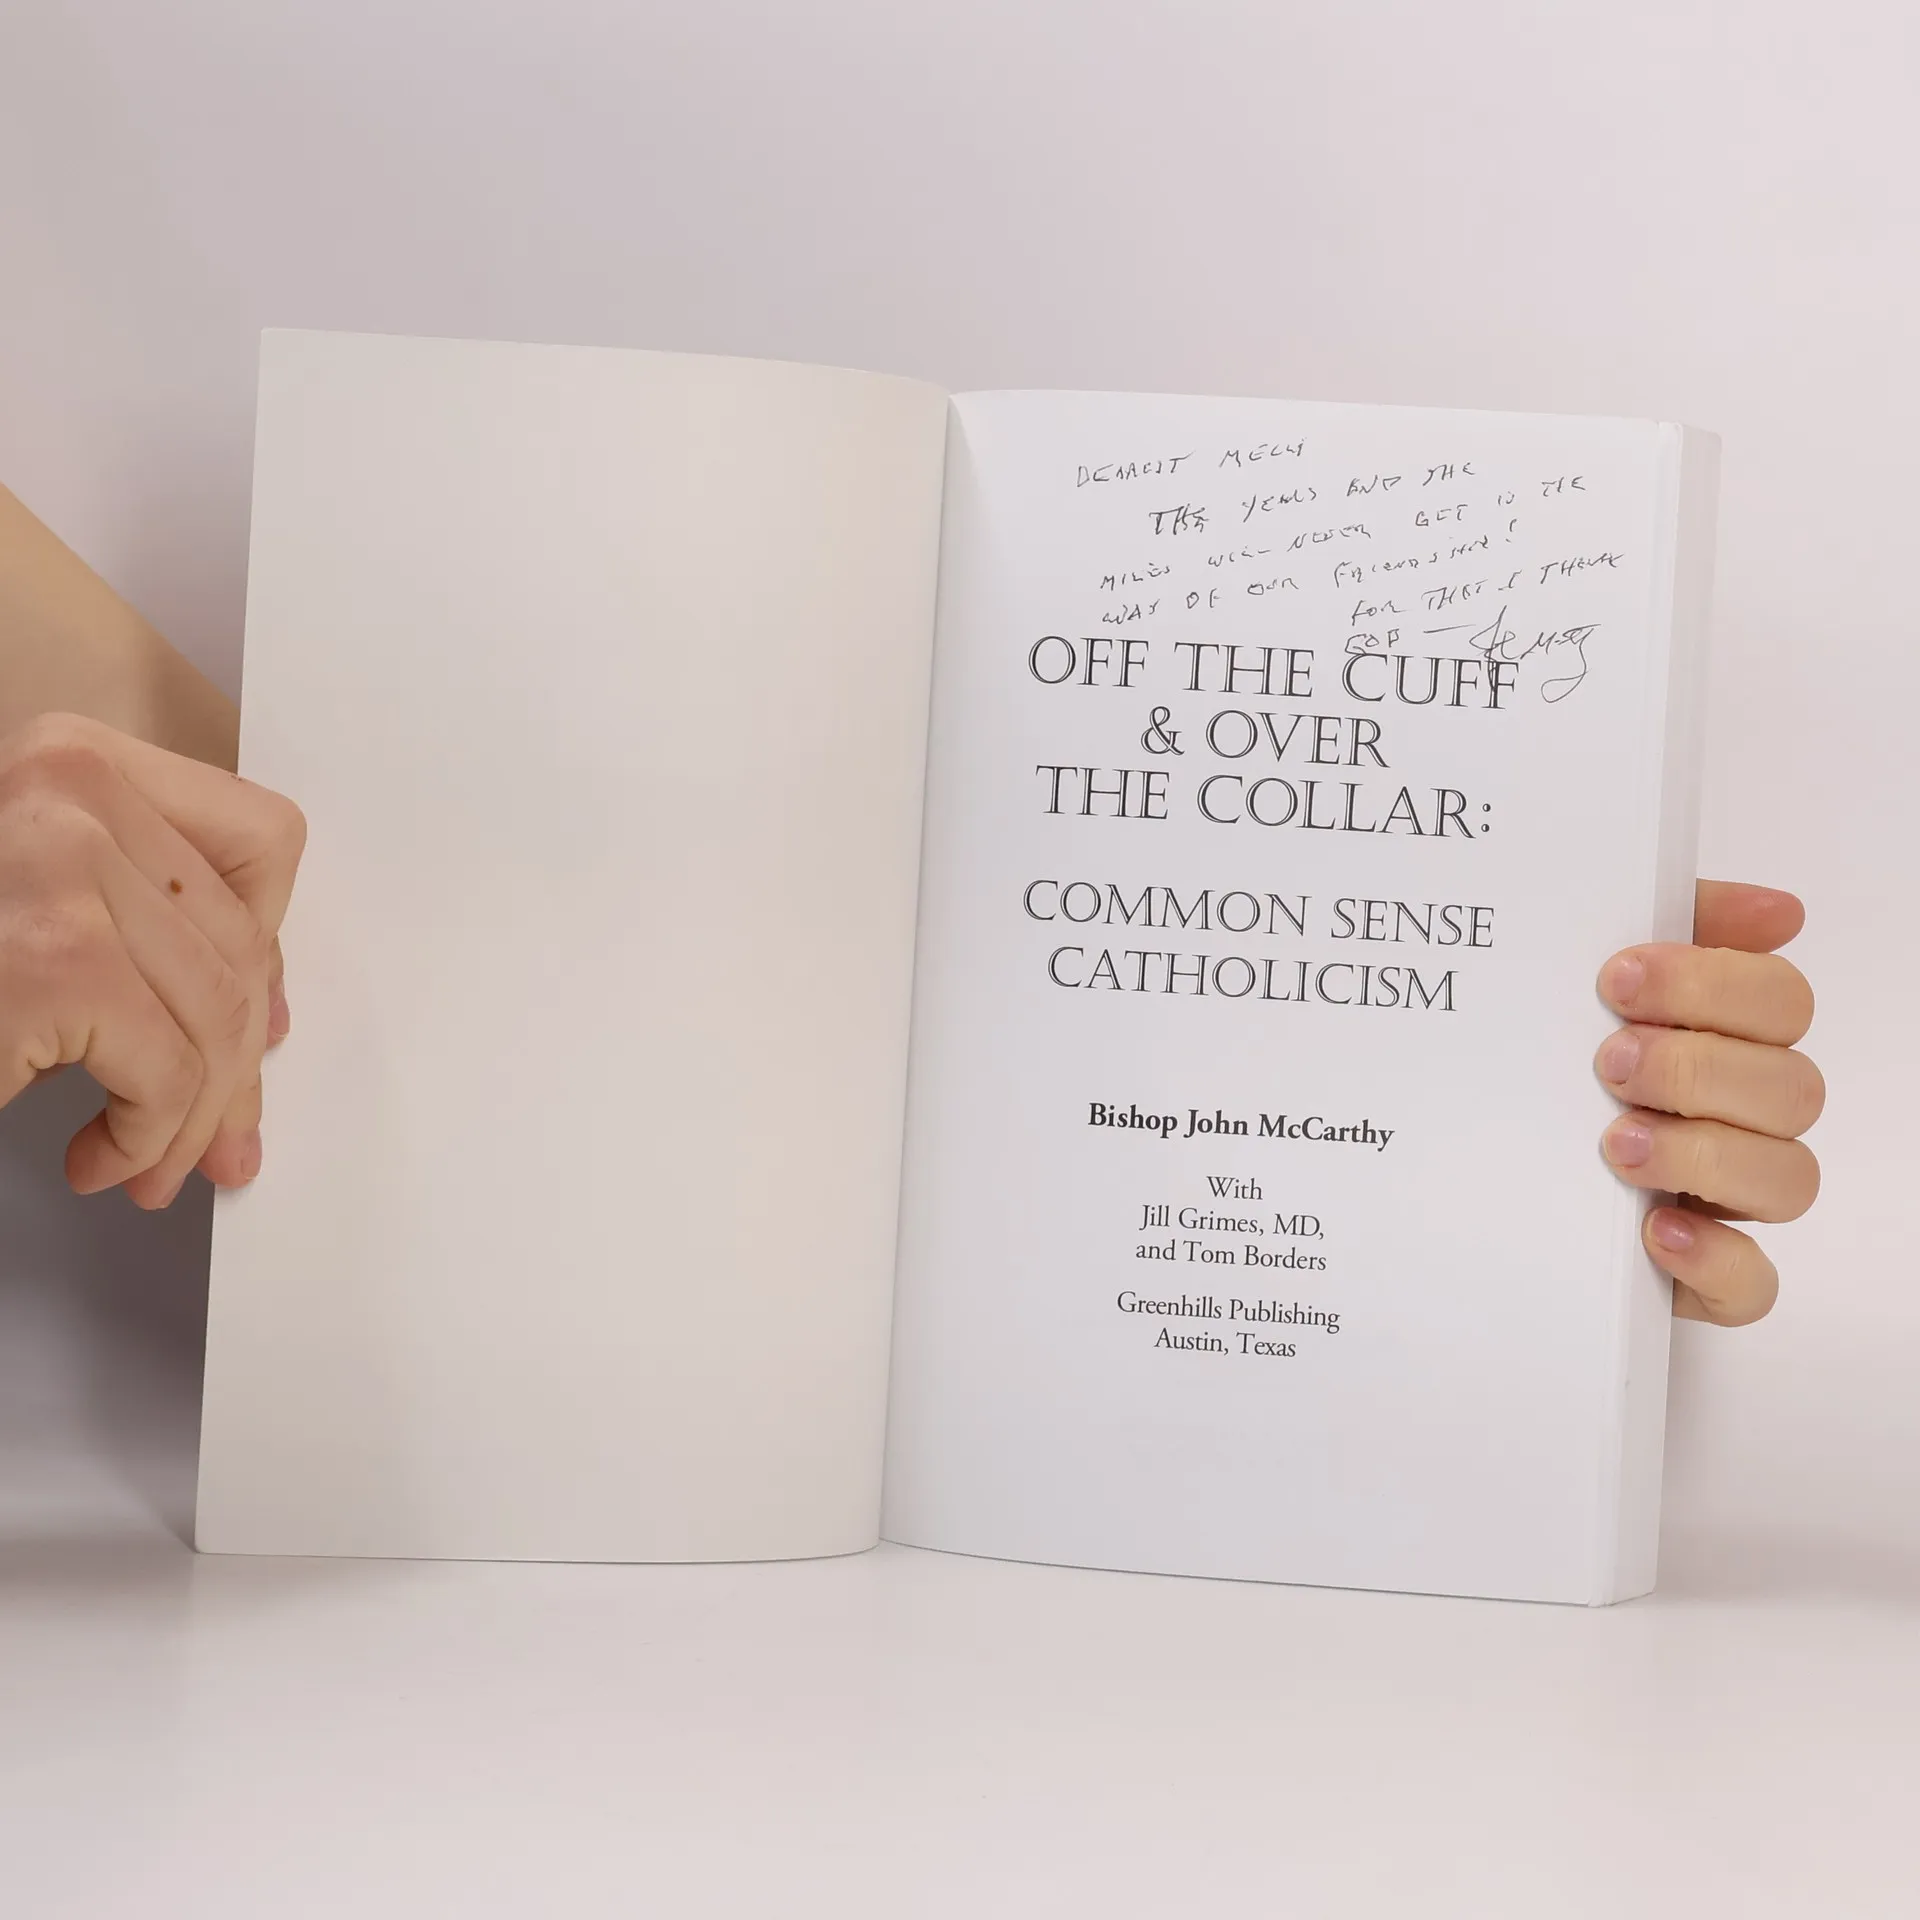 DEAREST MELLI
THE YEARS AND THE
MILES WILL NEVER GET IN THE
WAY OF OUR FRIENDSHIP!
FOR THAT I THANK
GOD —
OFF THE CUFF
& OVER
THE COLLAR:
COMMON SENSE
CATHOLICISM
Bishop John McCarthy
With
Jill Grimes, MD,
and Tom Borders
Greenhills Publishing
Austin, Texas